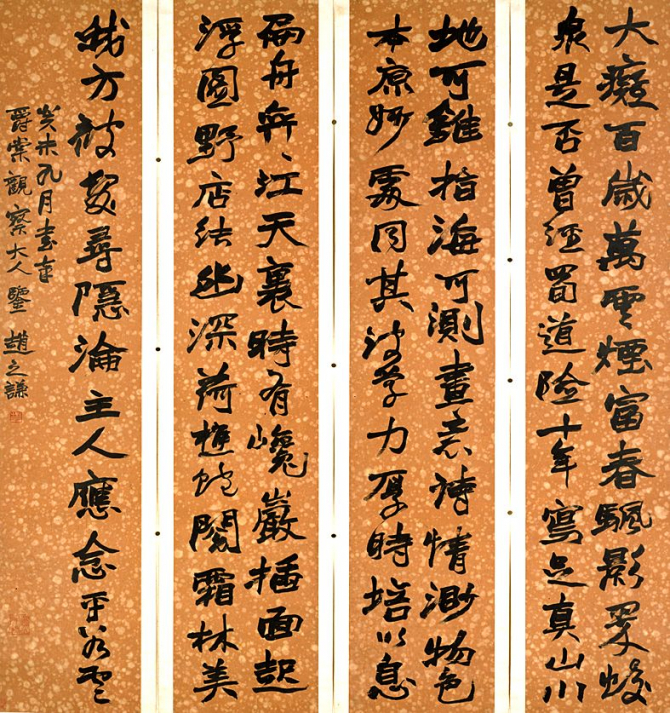 大癡百歲萬雲煙富春颿影蛟
泉是否曾經蜀道險十年寫足真山川
地可錐指海可測畫意詩情渺物色
本原妙處同其學力厚時培以息
扁舟弄江天裏時有巉巖插面起
浮圖野店結幽深荷樵霜林美
我方被髮尋隱淪主人應念平
癸未九月書奉
爵棠觀察大人鑒 趙之謙